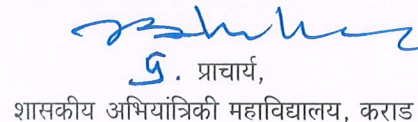 प्राचार्य,
शासकीय अभियांत्रिकी महाविद्यालय, कराड